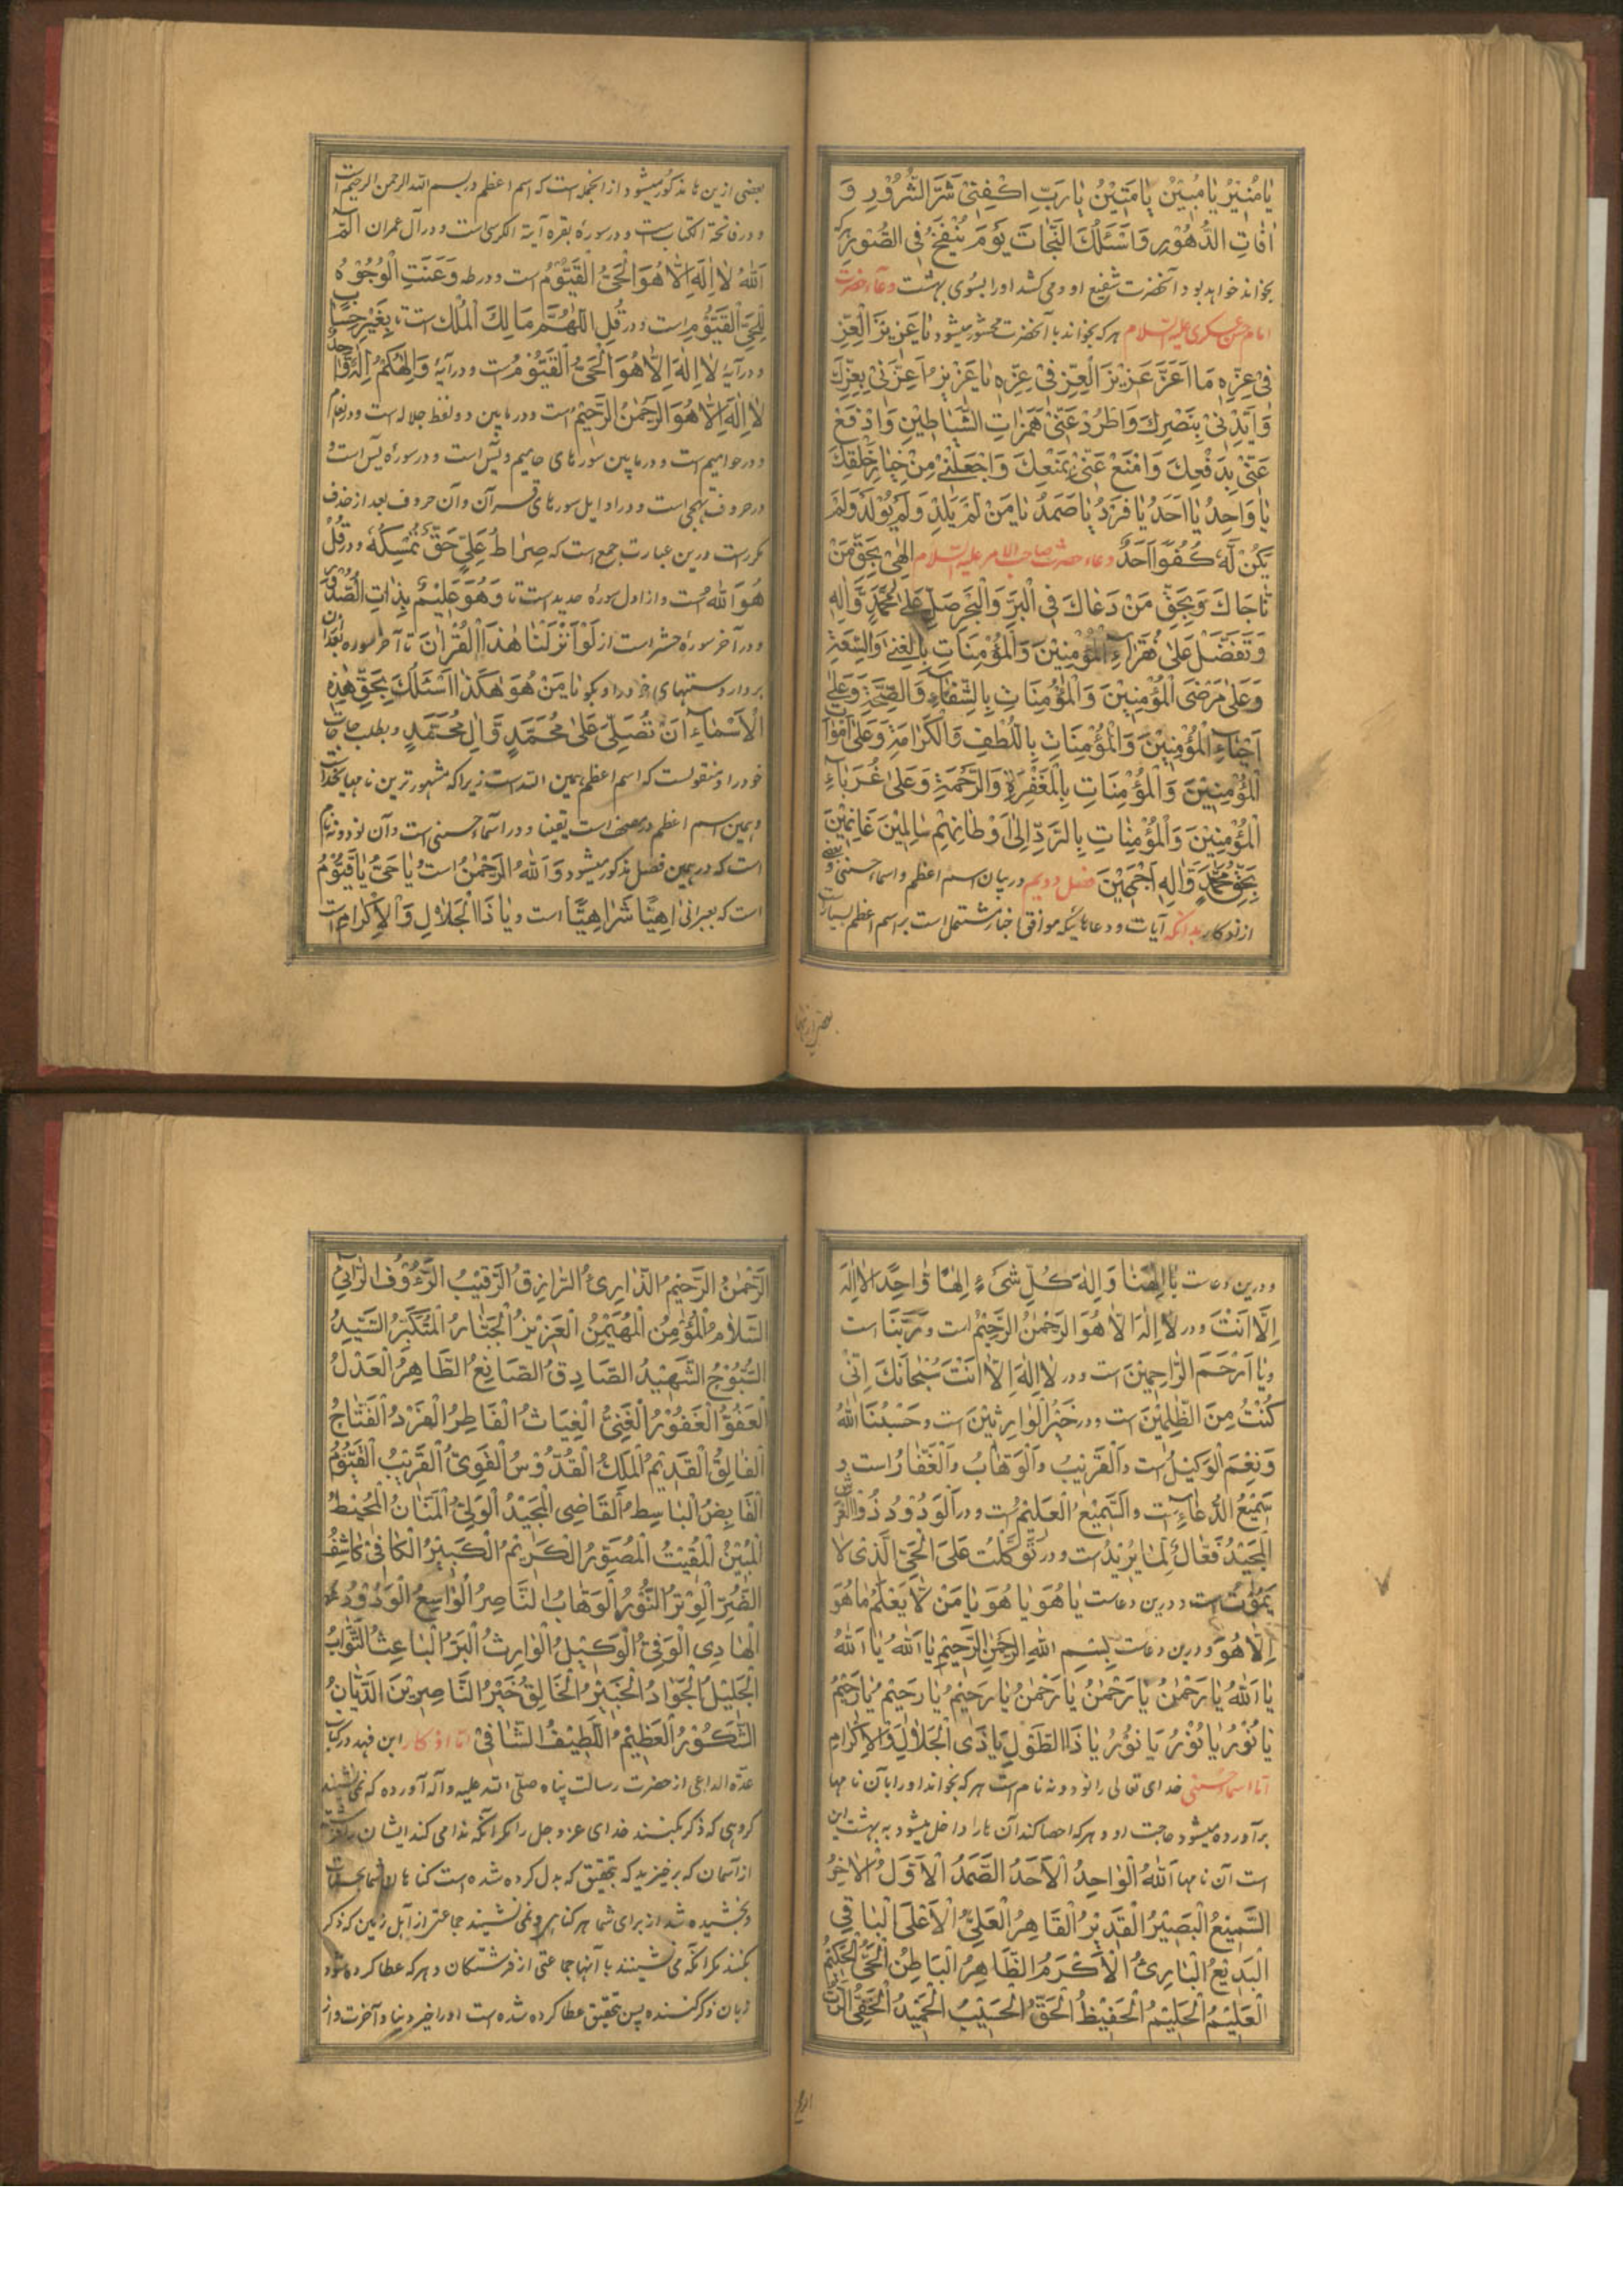 يا مُنِيْرُ يا مُبِيْنُ يا مَتِيْنُ يا رَبِّ اكْفِنِىْ شَرَّ الشُّرُوْرِ وَ
اٰفاتِ الدُّهُوْرِ وَاَسْئَلُكَ النَّجاتَ يَوْمَ يُنْفَخُ فِى الصُّوْرِ هركه
بخواند خواهد بود آنحضرت شفيع او و مى كشد اورا بسوى بهشت دعاء حضرت
امام حسن عسكرى عليه السلام هركه بخواند با آنحضرت محشور ميشود يا عَزِيْزَ الْعِزِّ
فىْ عِزِّهِ مَا اَعَزَّ عَزِيْزَ الْعِزِّ فىْ عِزِّهِ يا عَزِيْزُ اَعِزَّنىْ بِعِزِّكَ
وَاَيِّدْنىْ بِنَصْرِكَ وَاطْرُدْ عَنّىْ هَمَزاتِ الشَّياطِيْنِ وَادْفَعْ
عَنّىْ بِدَفْعِكَ وَامْنَعْ عَنّىْ بِمَنْعِكَ وَاجْعَلْنىْ مِنْ خِيارِ خَلْقِكَ
يا وَاحِدُ يا اَحَدُ يا فَرْدُ يا صَمَدُ يا مَنْ لَمْ يَلِدْ وَلَمْ يُوْلَدْ وَلَمْ
يَكُنْ لَهُ كُفُوًا اَحَدٌ دعاء حضرت صاحب الامر عليه السلام اِلٰهىْ بِحَقِّ مَنْ
ناجَاكَ وَبِحَقِّ مَنْ دَعَاكَ فِى الْبَرِّ وَالْبَحْرِ صَلِّ عَلىٰ مُحَمَّدٍ وَّاٰلِهِ
وَتَفَضَّلْ عَلىٰ فُقَرَاءِ الْمُؤْمِنِيْنَ وَالْمُؤْمِنَاتِ بِالْغِنىٰ وَالسَّعَةِ
وَعَلىٰ مَرْضَى الْمُؤْمِنِيْنَ وَالْمُؤْمِنَاتِ بِالشِّفَاءِ وَالصِّحَّةِ وَعَلىٰ
اَحْيَاءِ الْمُؤْمِنِيْنَ وَالْمُؤْمِنَاتِ بِاللُّطْفِ وَالْكَرَامَةِ وَعَلىٰ اَمْوَاتِ
الْمُؤْمِنِيْنَ وَالْمُؤْمِنَاتِ بِالْمَغْفِرَةِ وَالرَّحْمَةِ وَعَلىٰ غُرَبَاءِ
الْمُؤْمِنِيْنَ وَالْمُؤْمِنَاتِ بِالرَّدِّ اِلىٰ اَوْطَانِهِمْ سَالِمِيْنَ غَانِمِيْنَ
بِحَقِّ مُحَمَّدٍ وَّاٰلِهِ اَجْمَعِيْنَ فصل دويم در بيان اسم اعظم و اسماء حسنى و بعضى
از اذكار بدانكه آيات و دعاهائيكه موافق اخبار مشتمل است بر اسم اعظم بسيار است
بعضى از ينها
بعضى ازين ها مذكور ميشود از انجمله است كه اسم اعظم در بسم الله الرحمن الرحيم است
و در فاتحة الكتاب است و در سورۀ بقره آية الكرسى است و در آل عمران الٓمّٓ
اَللّٰهُ لا اِلٰهَ اِلّا هُوَ الْحَىُّ الْقَيُّوْمُ است و در طه وَعَنَتِ الْوُجُوْهُ
لِلْحَىِّ الْقَيُّوْمِ است و در قُلِ اللّٰهُمَّ مَالِكَ الْمُلْكِ است تا بِغَيْرِ حِسَابٍ
و در آيۀ لا اِلٰهَ اِلّا هُوَ الْحَىُّ الْقَيُّوْمُ است و در آيۀ وَاِلٰهُكُمْ اِلٰهٌ وَّاحِدٌ
لا اِلٰهَ اِلّا هُوَ الرَّحْمٰنُ الرَّحِيْمُ است و در مابين دو لفظ جلاله است در انعام
و در حواميم است و در مابين سورهاى حاميم و يٓس است و در سورۀ يٓس است و
در حروف تهجى است و در اوايل سورهاى قرآن و آن حروف بعد از حذف
مكرر است و رين عبارت جمع است كه صِراطُ عَلِىٍّ حَقٌّ نُمْسِكُهُ و در قُلْ
هُوَ اللّٰهُ است و از اول سورۀ حديد است تا وَهُوَ عَلِيْمٌ بِذَاتِ الصُّدُوْرِ
و در آخر سورۀ حشر است از لَوْ اَنْزَلْنا هٰذَا الْقُرْاٰنَ تا آخر سوره بعد ازان
بردار دستهاى خود را و بگو يا مَنْ هُوَ هٰكَذا اَسْئَلُكَ بِحَقِّ هٰذِهِ
الْاَسْمَاءِ اَنْ تُصَلِّىَ عَلىٰ مُحَمَّدٍ وَّاٰلِ مُحَمَّدٍ و بطلب حاجات
خود را و منقولست كه اسم اعظم همين الله است زيراكه مشهور ترين نامهاى خداست
و همين اسم اعظم در مصحف است يقينا و در اسماء حسنى است و آن نود و نه نام
است كه در همين فصل مذكور ميشود وَاللّٰهُ الرَّحْمٰنُ است و يا حَىُّ يا قَيُّوْمُ
است كه بعبرانى اَهِيًّا شَرَاهِيًّا است و يا ذَا الْجَلالِ وَالْاِكْرامِ است
و درين دعاست يا اِلٰهَنا وَاِلٰهَ كُلِّ شَىْءٍ اِلٰهًا وَّاحِدًا لا اِلٰهَ
اِلّا اَنْتَ و در لا اِلٰهَ اِلّا هُوَ الرَّحْمٰنُ الرَّحِيْمُ است و رَبَّنا است
و يا اَرْحَمَ الرّاحِمِيْنَ است و در لا اِلٰهَ اِلّا اَنْتَ سُبْحانَكَ اِنّىْ
كُنْتُ مِنَ الظّٰلِمِيْنَ است و در خَيْرُ الْوارِثِيْنَ است و حَسْبُنَا اللّٰهُ
وَنِعْمَ الْوَكِيْلُ است و اَلْقَرِيْبُ و اَلْوَهّابُ و اَلْغَفّارُ است و
سَمِيْعُ الدُّعاءِ است و السَّمِيْعُ الْعَلِيْمُ است و در اَلْوَدُوْدُ ذُو الْعَرْشِ
الْمَجِيْدُ فَعّالٌ لِما يُرِيْدُ است و در تَوَكَّلْتُ عَلَى الْحَىِّ الَّذىْ لا
يَمُوْتُ است و درين دعاست يا هُوَ يا هُوَ يا مَنْ لا يَعْلَمُ ما هُوَ
اِلّا هُوَ و درين دعاست بِسْمِ اللّٰهِ الرَّحْمٰنِ الرَّحِيْمِ يا اَللّٰهُ يا اَللّٰهُ
يا اَللّٰهُ يا رَحْمٰنُ يا رَحْمٰنُ يا رَحْمٰنُ يا رَحِيْمُ يا رَحِيْمُ يا رَحِيْمُ
يا نُوْرُ يا نُوْرُ يا نُوْرُ يا ذَا الطَّوْلِ يا ذَى الْجَلالِ وَالْاِكْرامِ
اما اسماء حسنى خداى تعالى را نود و نه نام است هركه بخواند اورا بآن نامها
برآورده ميشود حاجت او و هركه احصا كند آن ها را داخل ميشود به بهشت اين
است آن نامها اَللّٰهُ الْواحِدُ الْاَحَدُ الصَّمَدُ الْاَوَّلُ الْاٰخِرُ
السَّمِيْعُ الْبَصِيْرُ الْقَدِيْرُ الْقَاهِرُ الْعَلِىُّ الْاَعْلَى الْباقِى
الْبَدِيْعُ الْبارِئُ الْاَكْرَمُ الظَّاهِرُ الْبَاطِنُ الْحَىُّ الْحَكِيْمُ
الْعَلِيْمُ الْحَلِيْمُ الْحَفِيْظُ الْحَقُّ الْحَسِيْبُ الْحَمِيْدُ الْحَفِىُّ الرَّبُّ
الرَّحْمٰنُ الرَّحِيْمُ الذّارِئُ الرّازِقُ الرَّقِيْبُ الرَّءُوْفُ الرّائِىْ
السَّلامُ الْمُؤْمِنُ الْمُهَيْمِنُ الْعَزِيْزُ الْجَبّارُ الْمُتَكَبِّرُ السَّيِّدُ
السُّبُّوْحُ الشَّهِيْدُ الصَّادِقُ الصَّانِعُ الطَّاهِرُ الْعَدْلُ
الْعَفُوُّ الْغَفُوْرُ الْغَنِىُّ الْغِيَاثُ الْفَاطِرُ الْفَرْدُ الْفَتّاحُ
الْفالِقُ الْقَدِيْمُ الْمَلِكُ الْقُدُّوْسُ الْقَوِىُّ الْقَرِيْبُ الْقَيُّوْمُ
الْقَابِضُ الْبَاسِطُ الْقَاضِى الْمَجِيْدُ الْوَلِىُّ الْمَنّانُ الْمُحِيْطُ
الْمُبِيْنُ الْمُقِيْتُ الْمُصَوِّرُ الْكَرِيْمُ الْكَبِيْرُ الْكافِىْ كاشِفُ
الضُّرِّ الْوِتْرُ النُّوْرُ الْوَهّابُ النَّاصِرُ الْوَاسِعُ الْوَدُوْدُ
الْهادِى الْوَفِىُّ الْوَكِيْلُ الْوَارِثُ الْبَرُّ الْبَاعِثُ التَّوَّابُ
الْجَلِيْلُ الْجَوَادُ الْخَبِيْرُ الْخَالِقُ خَيْرُ النَّاصِرِيْنَ الدَّيّانُ
الشَّكُوْرُ الْعَظِيْمُ اللَّطِيْفُ الشّافِىْ اما اذكار ابن فهد در كتاب
عدّة الداعى از حضرت رسالت پناه صلّى الله عليه وآله آورده كه نمى نشينند
گروهى كه ذكر بكنند خداى عز و جل را مگر آنكه ندا مى كند ايشان را
از آسمان كه برخيزيد كه بتحقيق كه بدل كرده شده است گناهان شما بحسنات
و بخشيده شد از براى شما هر گناه و نمى نشينند جماعتى از اهل زمين كه ذكر
بكنند مگر آنكه مى نشينند با آنها جماعتى از فرشتگان و هركه عطا كرده شود
زبان ذكر كننده پس بتحقيق عطا كرده شده است اورا خير دنيا و آخرت و از